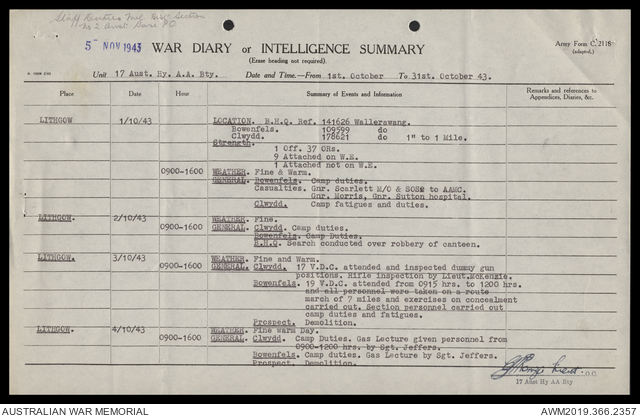 5 NOV 1943 WAR DIARY or INTELLIGENCE SUMMARY
(Erase heading not required).
Army Form C. 2118
(adapted.)
Unit 17 Aust. Hy. A.A. Bty. Date and Time.—From 1st. October To 31st. October 43.
Place Date Hour Summary of Events and Information Remarks and references to
Appendices, Diaries, &c.
LITHGOW 1/10/43 LOCATION. B.H.Q. Ref. 141626 Wallerawang.
Bowenfels. 109599 do
Clwydd. 178621 do 1" to 1 Mile.
Strength.
1 Off. 37 ORs.
9 Attached on W.E.
1 Attached not on W.E.
0900-1600 WEATHER. Fine & Warm.
GENERAL. Bowenfels. Camp duties.
Casualties. Gnr. Scarlett M/O & SOS to AAMC.
Gnr. Morris, Gnr. Sutton hospital.
Clwydd. Camp fatigues and duties.
LITHGOW. 2/10/43 WEATHER. Fine.
0900-1600 GENERAL. Clwydd. Camp duties.
Bowenfels. Camp Duties.
B.H.Q. Search conducted over robbery of canteen.
LITHGOW. 3/10/43 WEATHER. Fine and Warm.
0900-1600 GENERAL. Clwydd. 17 V.D.C. attended and inspected dummy gun
positions. Rifle inspection by Lieut. McKenzie.
Bowenfels. 19 V.D.C. attended from 0915 hrs. to 1200 hrs.
and all personnel were taken on a route
march of 7 miles and exercises on concealment
carried out. Section personnel carried out
camp duties and fatigues.
Prospect. Demolition.
LITHGOW. 4/10/43 WEATHER. Fine warm Day.
0900-1600 GENERAL. Clwydd. Camp Duties. Gas Lecture given personnel from
0900-1200 hrs. by Sgt. Jeffers.
Bowenfels. Camp duties. Gas Lecture by Sgt. Jeffers.
Prospect. Demolition.
O.C.
17 Aust Hy AA Bty
AUSTRALIAN WAR MEMORIAL AWM2019.366.2357